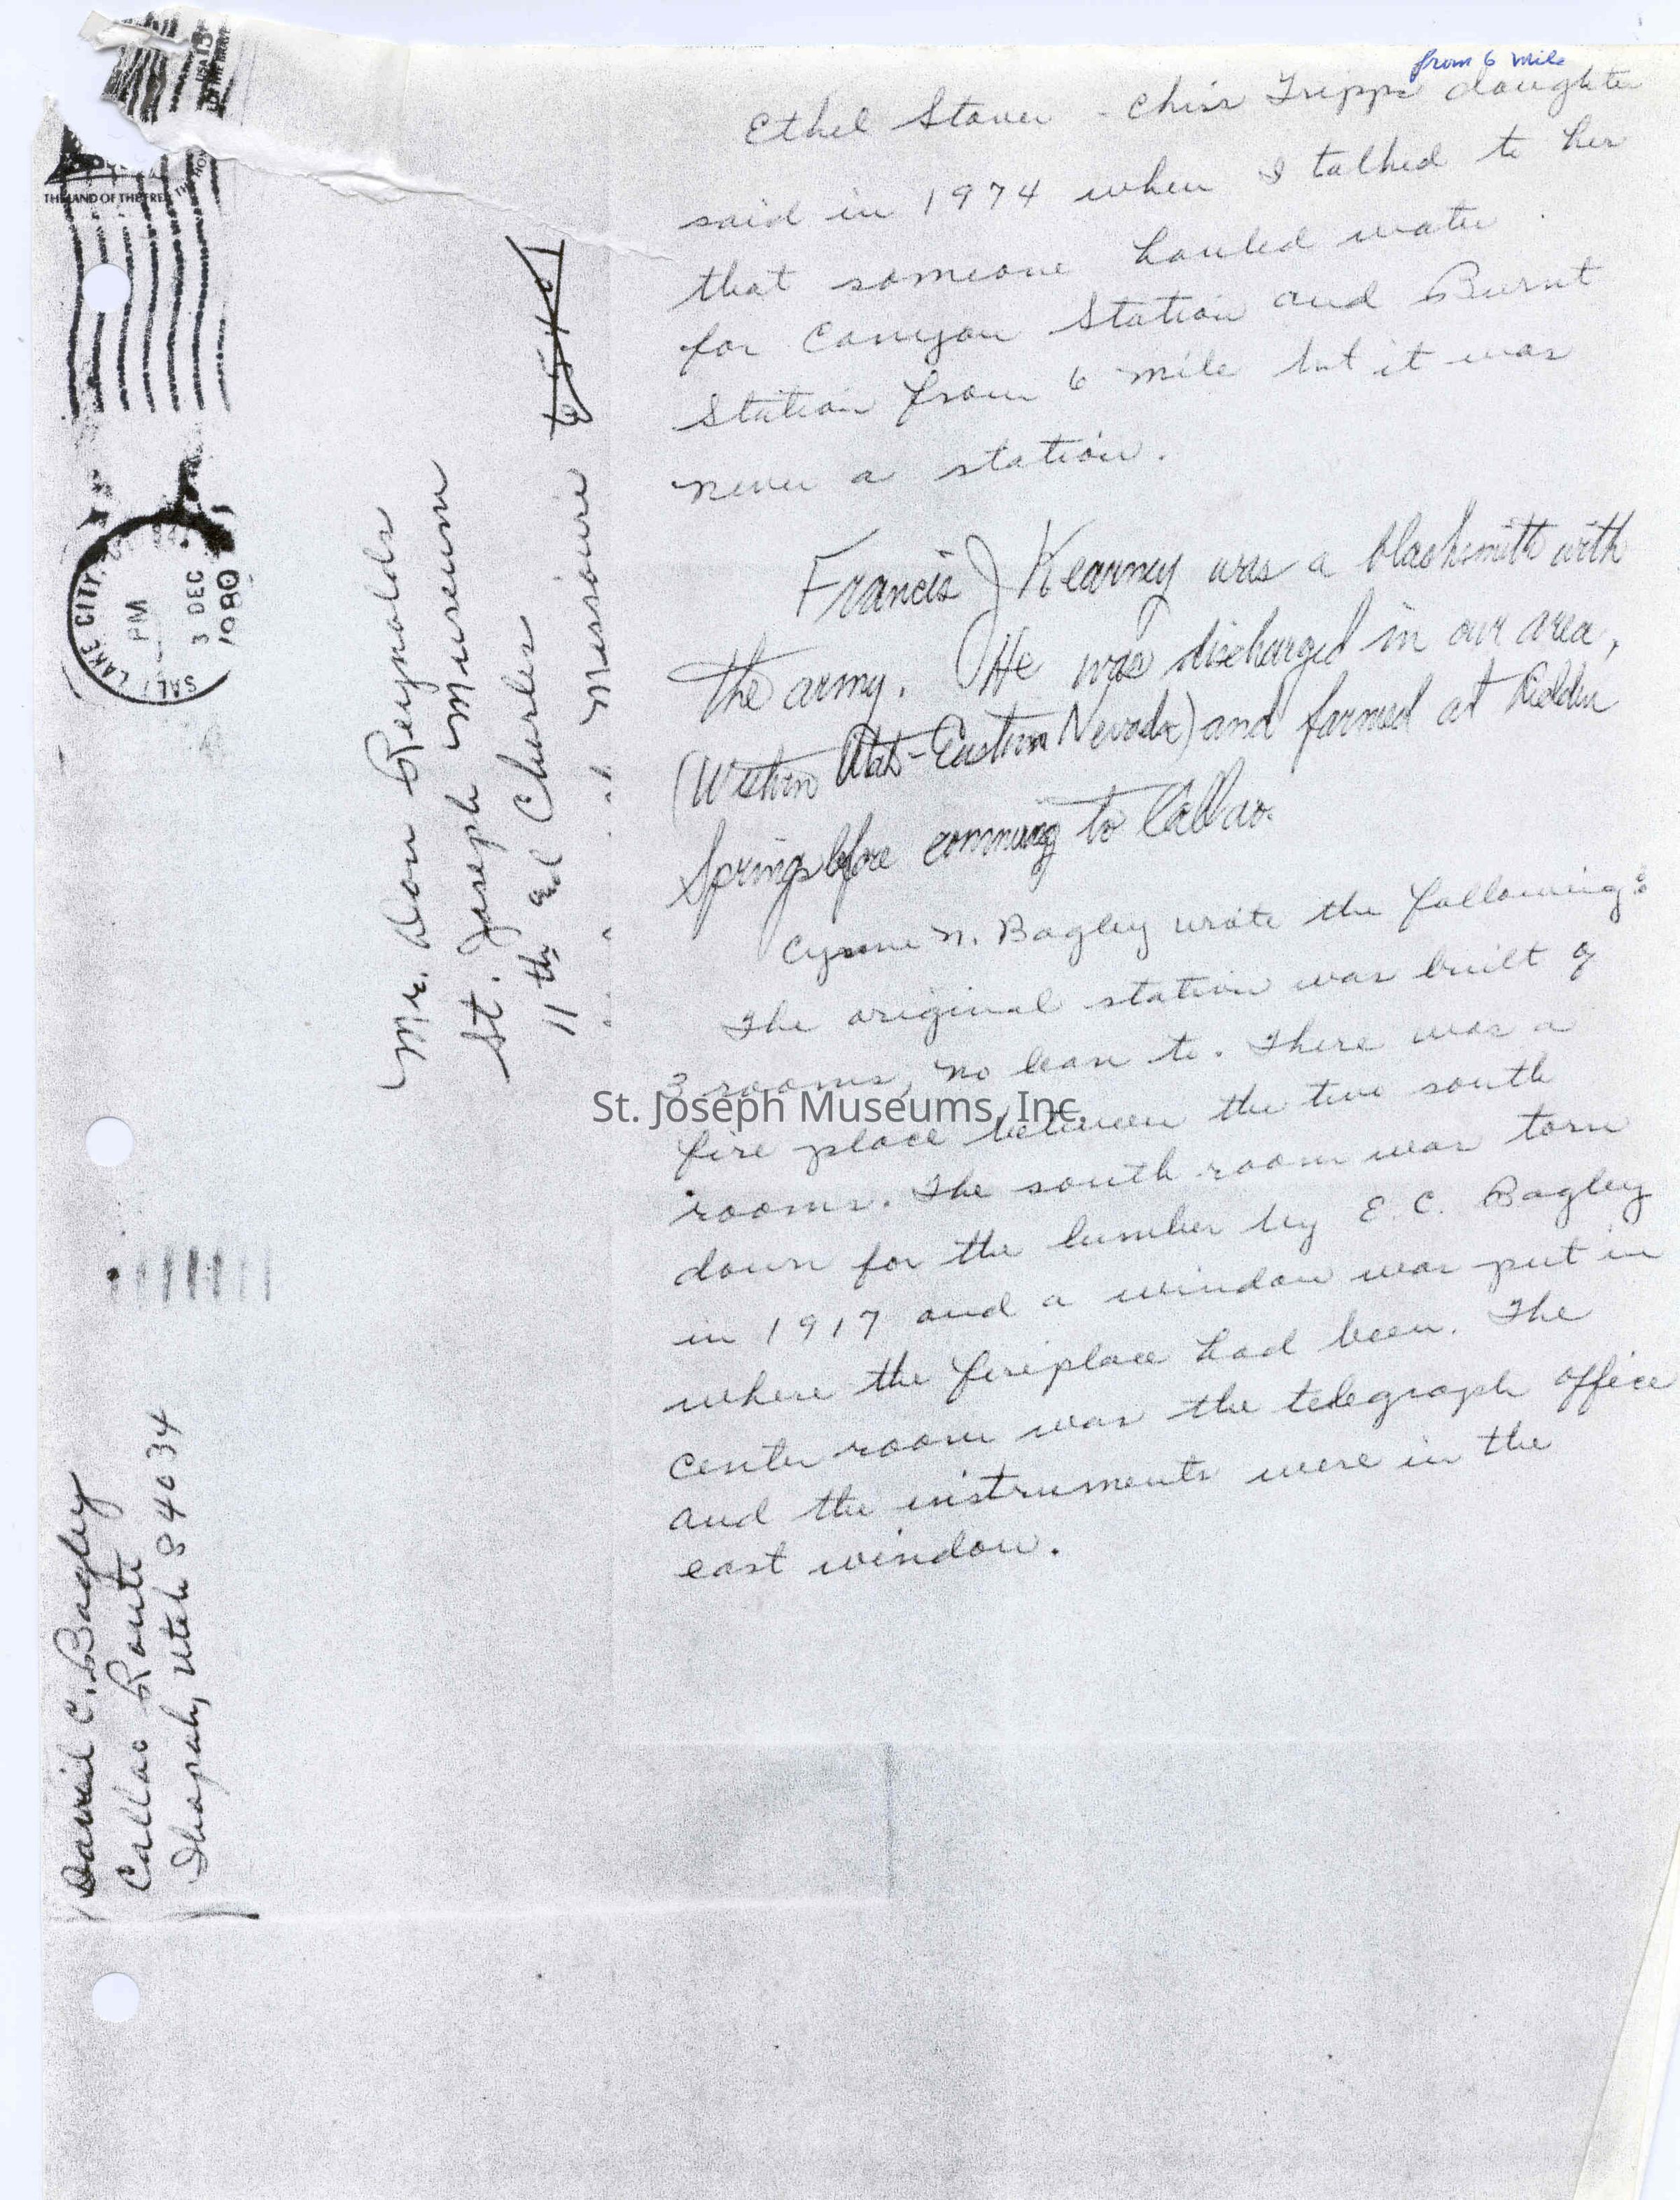 from 6 mile
Ethel Stover - Chris Tripps daughter
said in 1974 when I talked to her
that someone hauled water
for Canyon Station and Burnt
Station from 6 mile but it was
never a station.
Francis J Kearney was a blacksmith with
the army. He was discharged in our area,
(Western Utah-Eastern Nevada) and farmed at
Springs before comming to Callao.
N. Bagley wrote the following:
The original station was built of
3 rooms, no lean to. There was a
fire place between the two south
rooms. The south room was torn
down for the lumber by E. C. Bagley
in 1917 and a window was put in
where the fireplace had been. The
center room was the telegraph office
and the instruments were in the
east window.
Mr. Don Reynolds
St. Joseph Museum
11th and Charles
Missourie
David C. Bagley
Callao Route
Ibapah, Utah 84034
SALT LAKE CITY,
PM
3 DEC
1980
USA 15
THE LAND OF THE FREE
St. Joseph Museums, Inc.